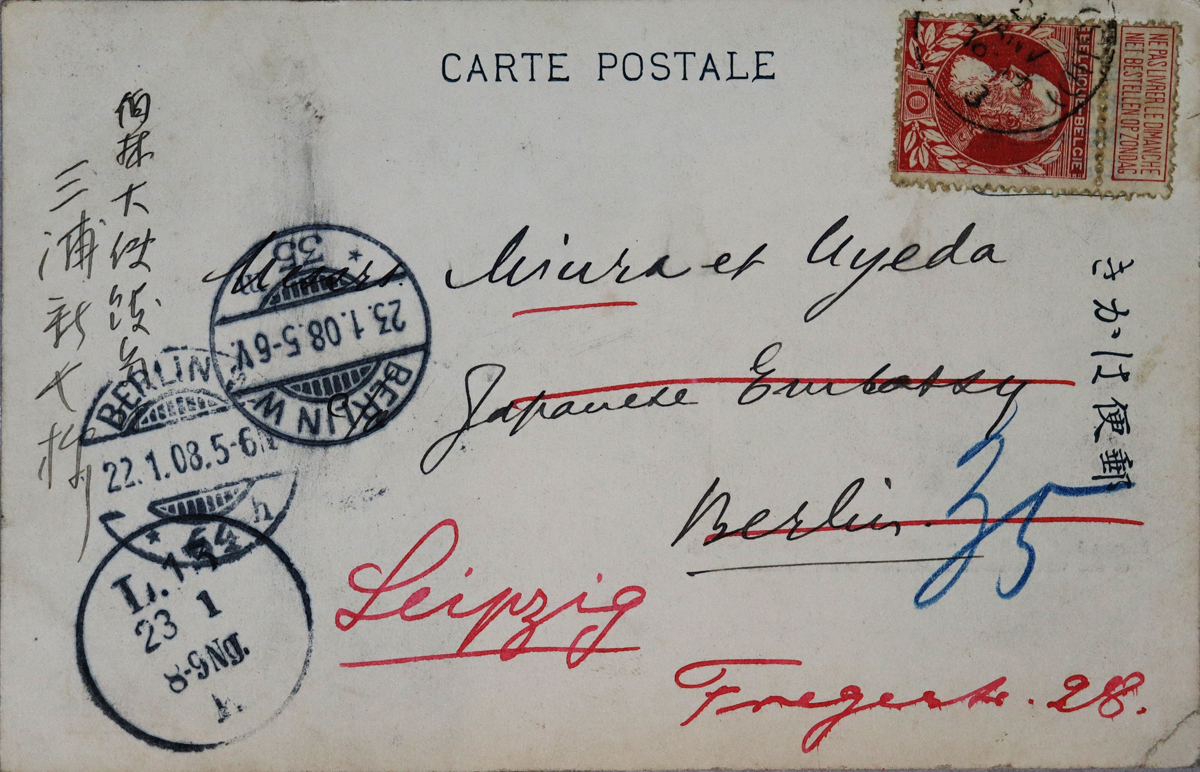 CARTE POSTALE
BELGIQUE-BELGIË
10
NE PAS LIVRER LE DIMANCHE
NIET BESTELLEN OP ZONDAG
21
JANV
Miura et Uyeda
Japanese Embassy
Berlin.
35
Leipzig
Fregestr. 28.
きかは便郵
伯林大使館気
三浦新七様
BERLIN W
35
23.1.08.5-6V.
BERLIN W
22.1.08.5-6N
64
h
L.13
23 1
8-9N